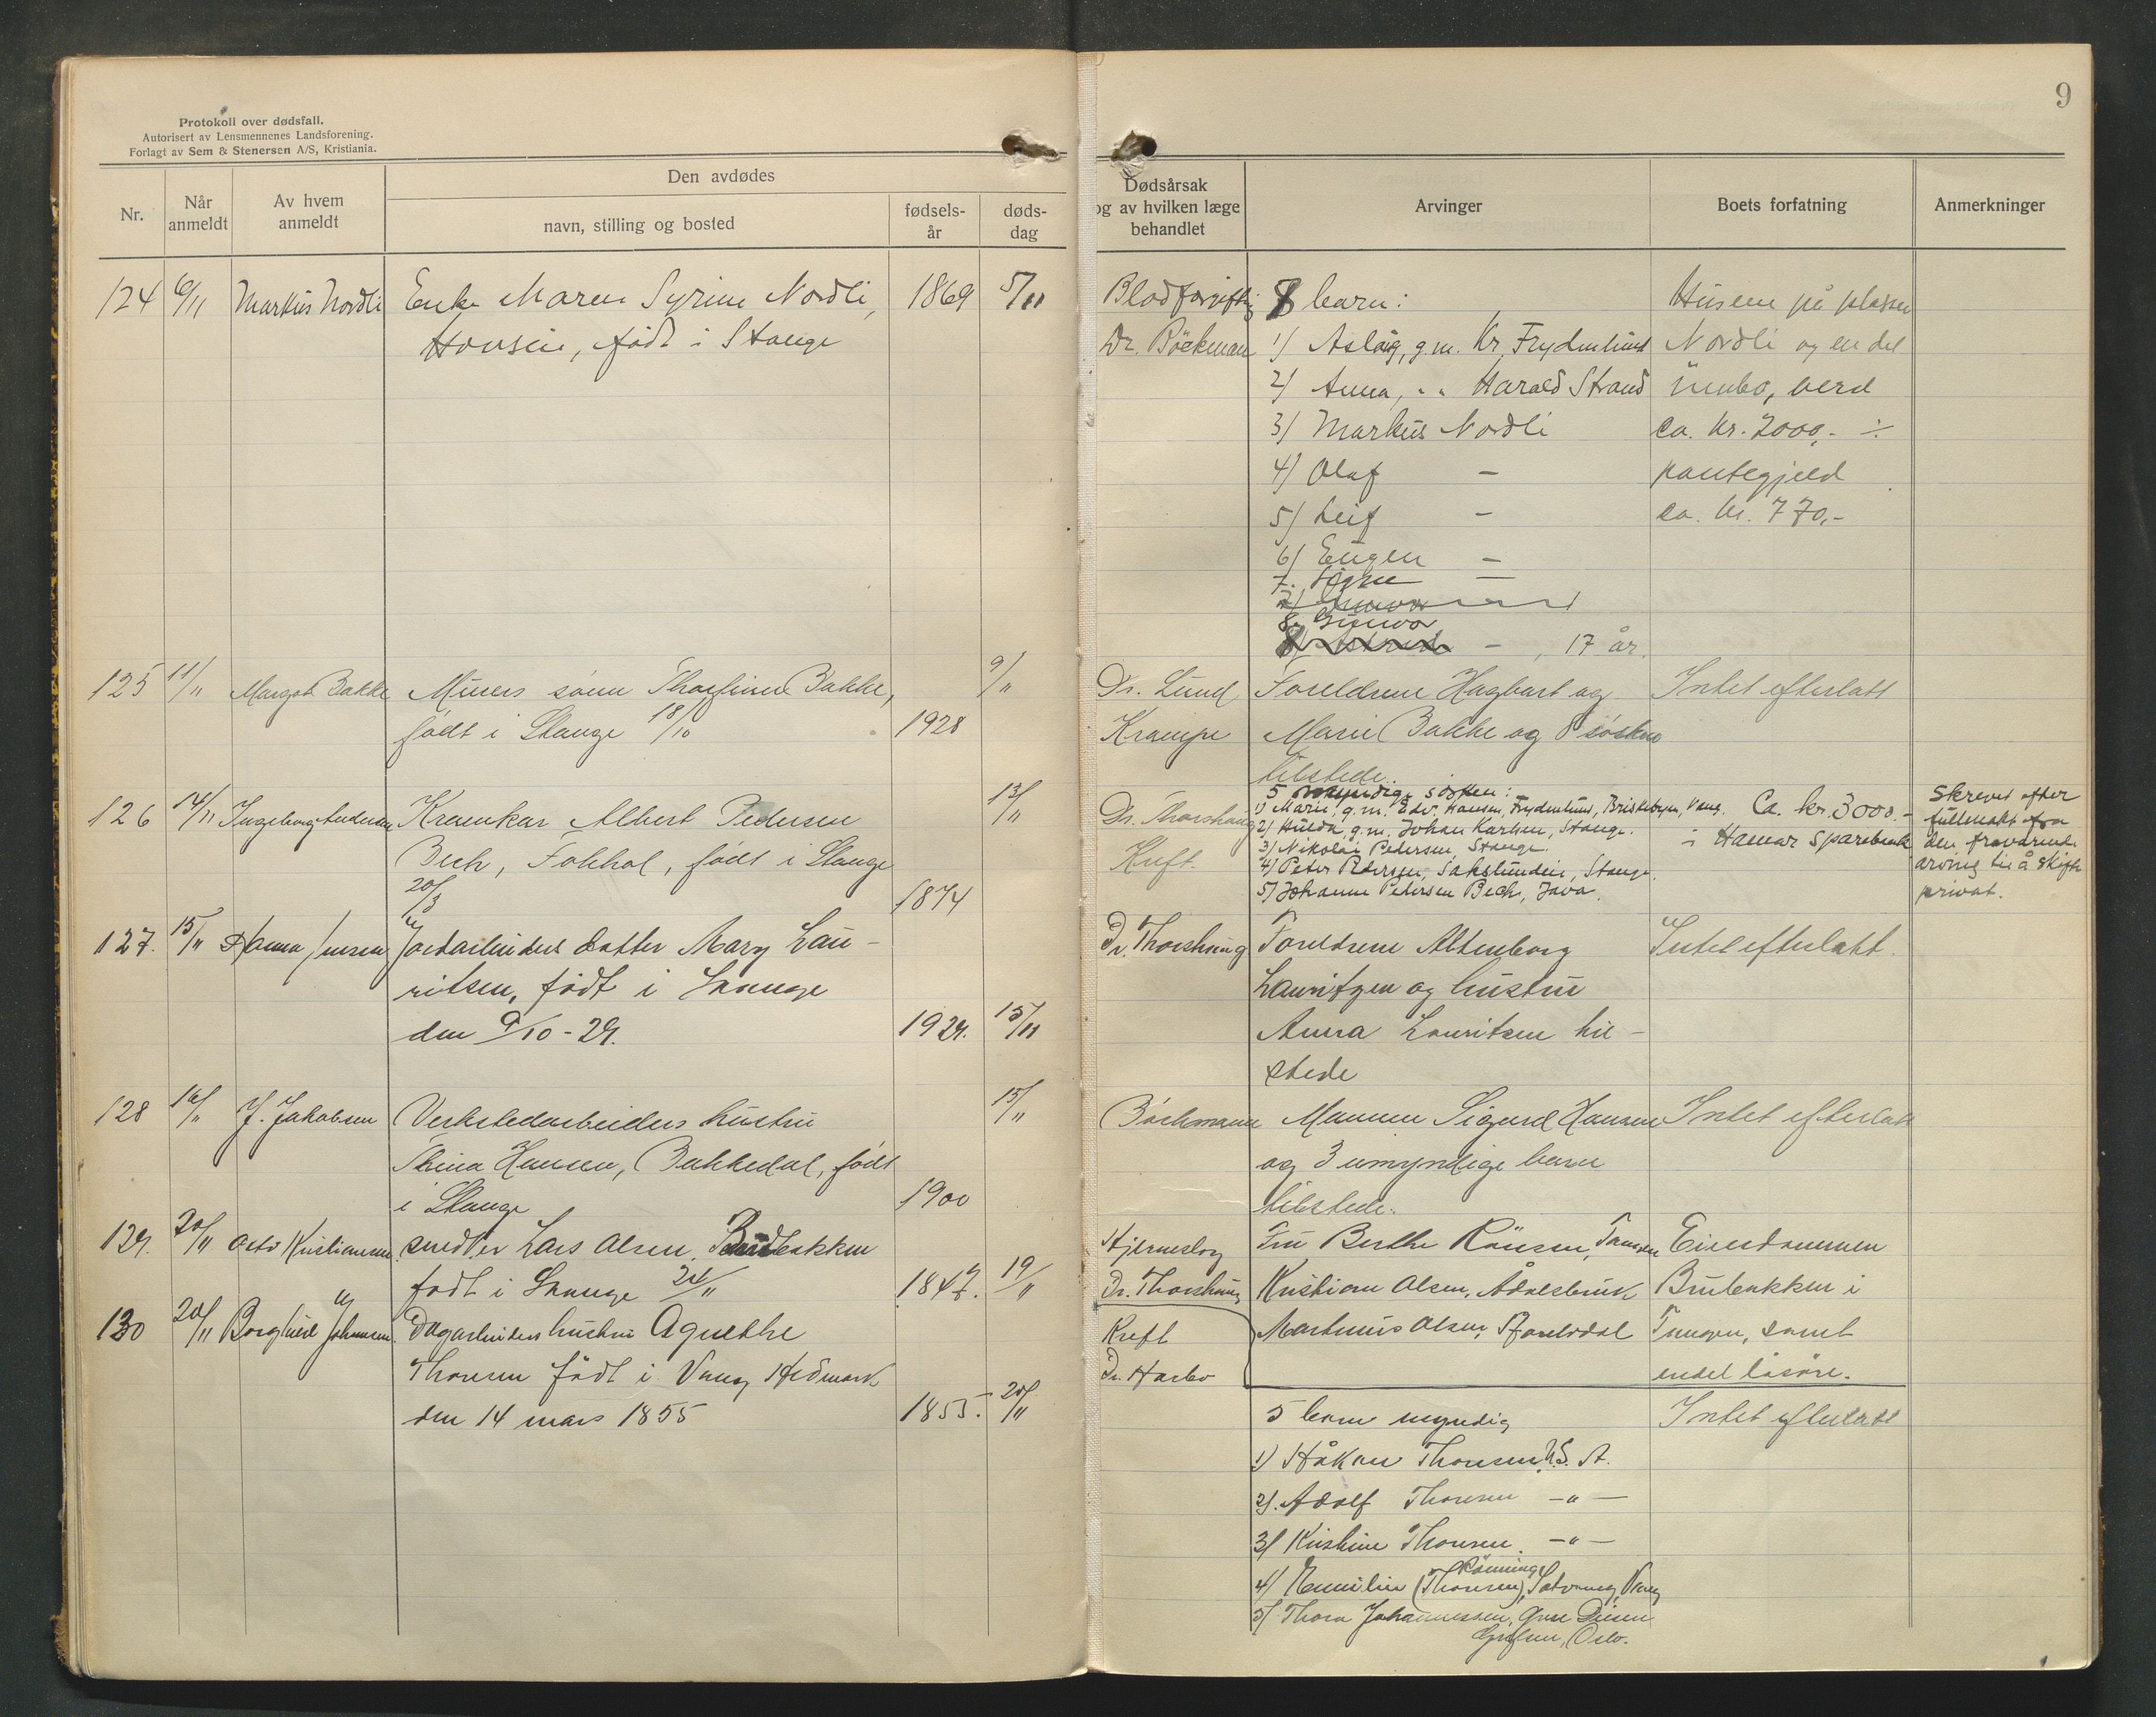 9
Protokoll over dødsfall.
Autorisert av Lensmennenes Landsforening.
Forlagt av Sem & Stenersen A/S, Kristiania.
Nr.
Når anmeldt
Av hvem anmeldt
Den avdødes
navn, stilling og bosted
fødsels-år
døds-dag
Dødsårsak og av hvilken læge behandlet
Arvinger
Boets forfatning
Anmerkninger
124 6/11 Markus Nordli Enke Maren Syrine Nordli, 1869 5/11
født i Stange
Blodforgiftig
Dr. Böckman
8 barn:
1) Aslaug, g.m. Kr. Frydenlund
2) Anna, " Harald Strand
3) Markus Nordli
4) Olaf –
5) Leif –
6) Eugen –
7. Signe –
8. Gunvor
– , 17 år.
Husene på plassen
Nordli og en del
innbo, verd
ca. kr. 2000,- ÷
pantegjeld
ca. kr. 770,-
125 11/11 Margot Bakke Murers sønn Thorfinn Bakke, 9/11
født i Stange 18/10 1928
Dr. Lund
Krampe
Foreldrene Hagbart og
Marie Bakke og 8 søsken
tilstede.
Intet efterlatt
126 14/11 Ingeborg Andersen Kramkar Albert Pedersen 13/11
Bech, Fokhol, født i Stange
20/3 1874
Dr. Thorshaug
Kreft.
5 søsken:
1) Marie, g.m. Edv. Hansen, Frydenlund, Briskebyen, Vang.
2) Hulda, g.m. Johan Karlsen, Stange.
3) Nikolai Pedersen, Stange.
4) Peter Pedersen, Sakslunden, Stange.
5) Johanne Pedersen Bech, Java.
Ca. kr. 3000.-
i Hamar Sparebank
Skrevet efter
fullmakt fra
den fraværende
arving til å skifte
privat.
127. 15/11 Hanna Jensen Jordarbeiders datter Mary Lau-
ritsen, født i Stange
den 9/10-29. 1929. 15/11
Dr. Thorshaug
Foreldrene Altenborg
Lauritzen og hustru
Anna Lauritsen til-
stede
Intet efterlatt.
128 16/11 J. Jakobsen Verkstedarbeiders hustru 15/11
Hansen, Bakkedal, født
i Stange 1900
Böckmann
Mannen Sigurd Hansen
og 3 umyndige barn
tilstede.
Intet efterlatt
129. 20/11 Otto Kristiansen smed er Lars Olsen, Brubakken
født i Stange 24/11 1847. 19/11
Hjerneslag
Dr. Thorshaug
Fru Berthe Rønsen, Tangen
Kristian Olsen, Ådalsbruk
Martinius Olsen,
Eiendommen
Brubakken i
Tangen, samt
endel løsøre.
130 20/11 Borghild Johansen Dagarbeiders hustru Agnethe
Thoresen født i Vang Hedmark
den 14 mars 1855 1855. 20/11
Kreft
Dr. Harbo
5 barn myndig
1) Håkon Thoresen U.S.A.
2). Adolf Thoresen –"–
3) Kristine Thoresen. –"–
4) Emilie (Thoresen) Rønning, Vang
5) Thora Johannessen,
Grefsen, Oslo.
Intet efterlatt